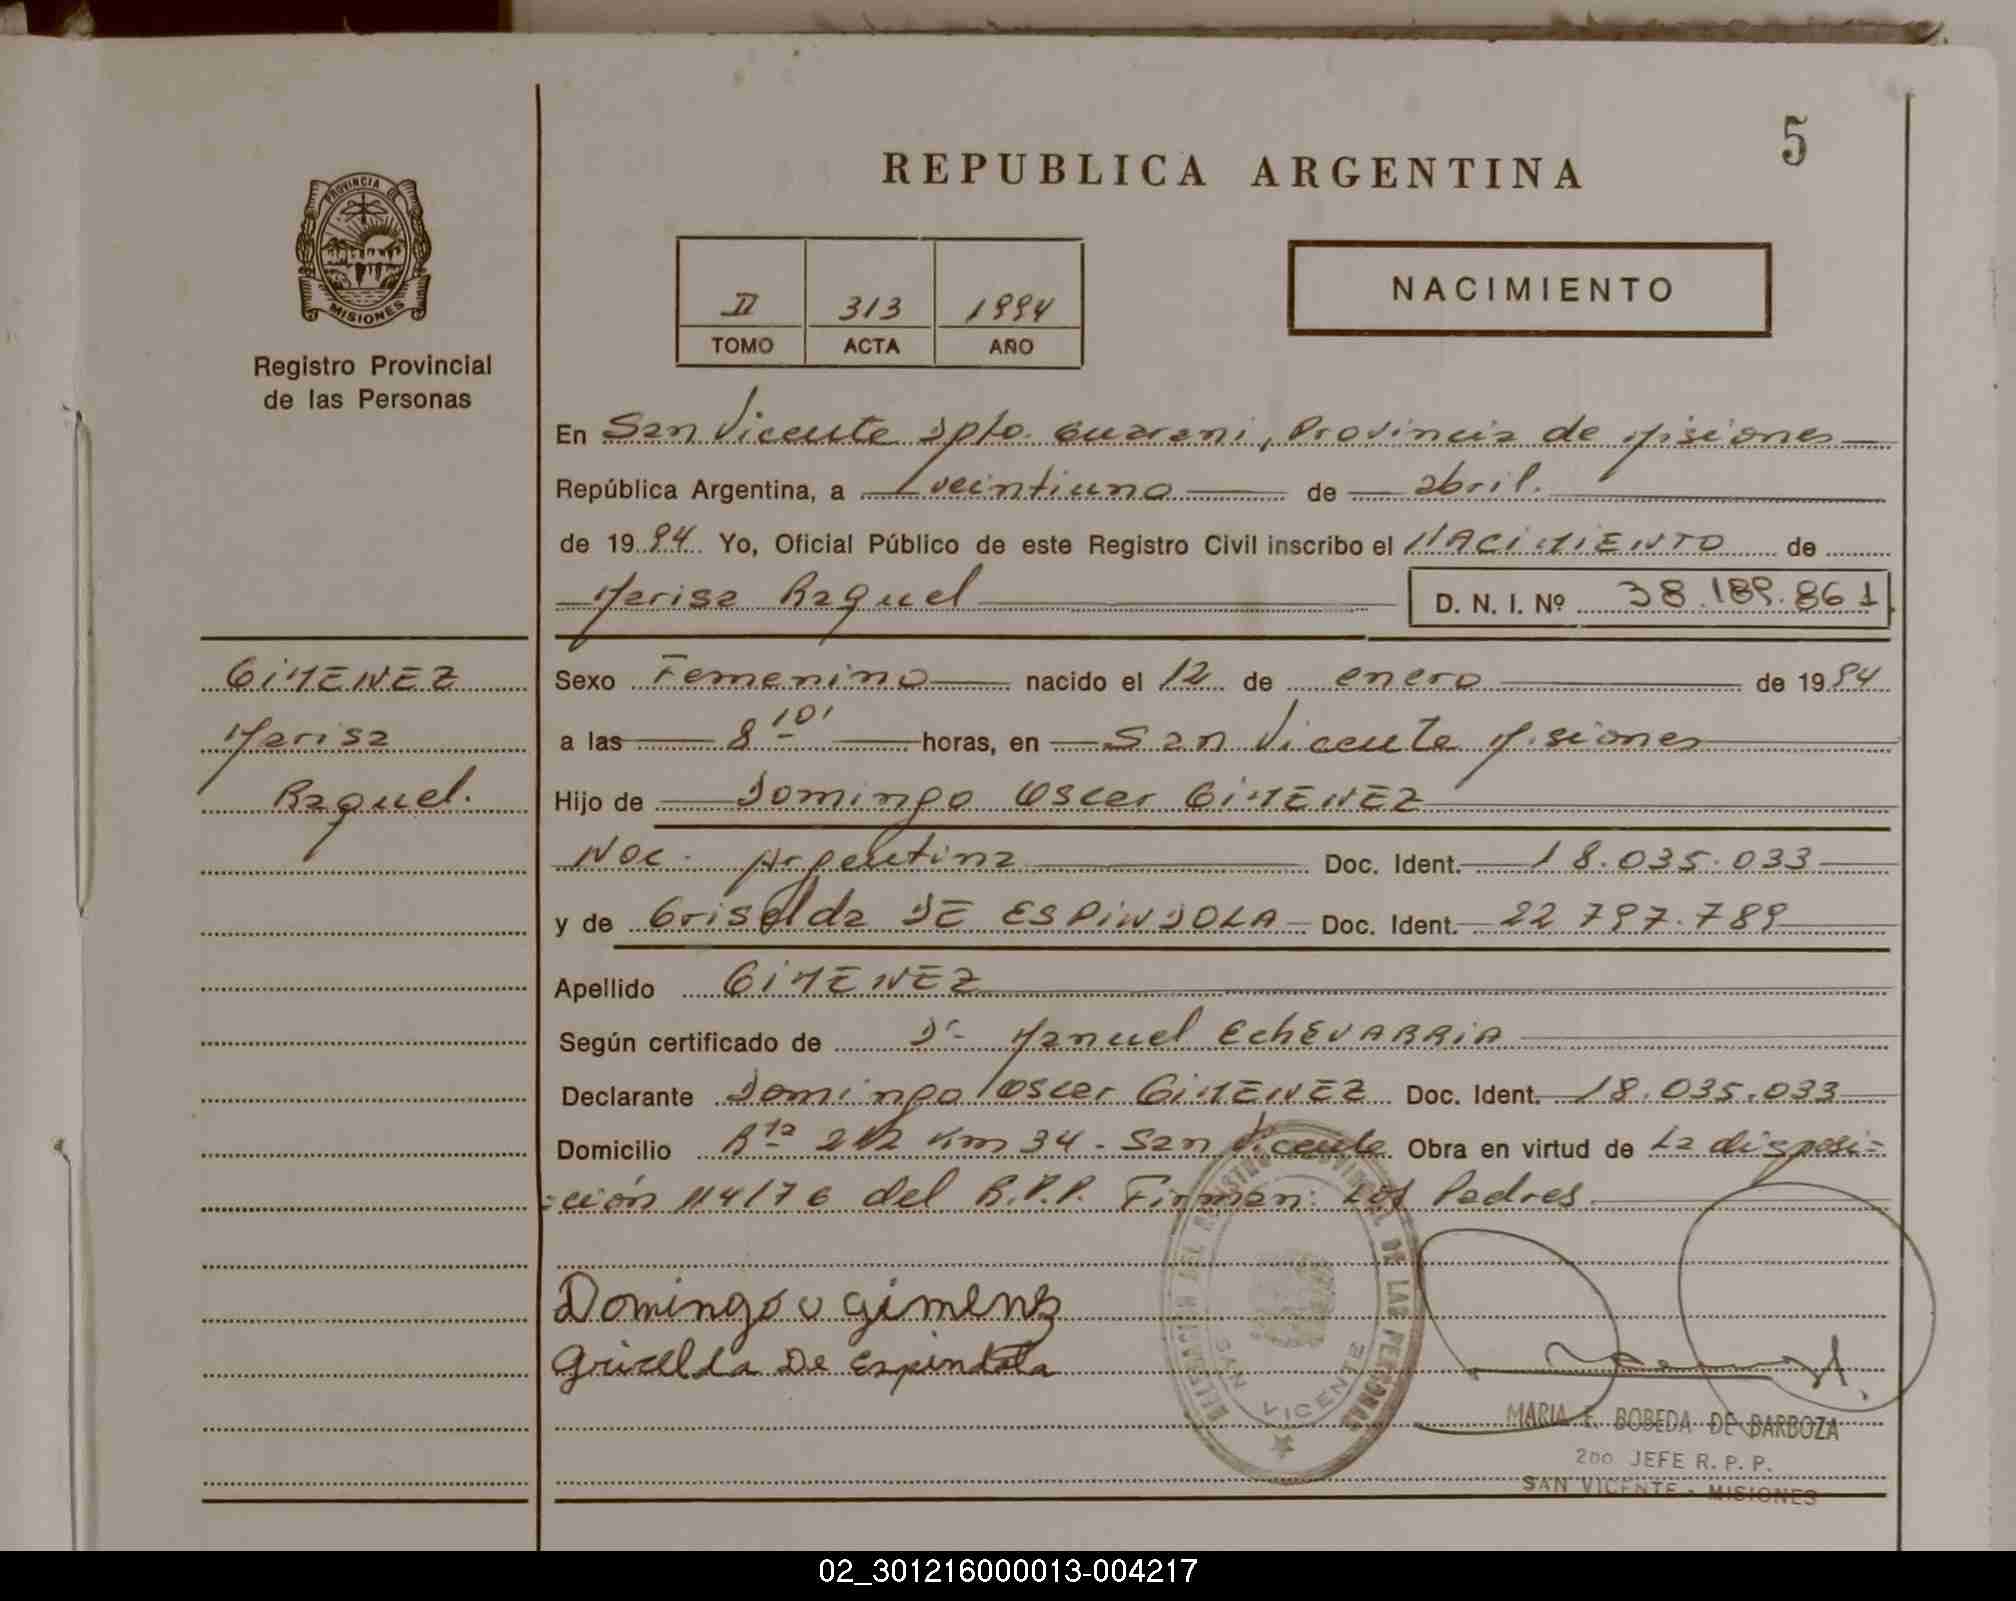 5
REPUBLICA ARGENTINA
PROVINCIA DE
MISIONES
Registro Provincial
de las Personas
II 313 1994
TOMO ACTA AÑO
NACIMIENTO
En San Vicente Dpto. Guarani, Provincia de Misiones
República Argentina, a veintiuno de abril.
de 1994 Yo, Oficial Público de este Registro Civil inscribo el NACIMIENTO de
Marisa Raquel D. N. I. Nº 38.189.861
GIMENEZ
Marisa
Raquel.
Sexo Femenino nacido el 12 de enero de 1994
a las 8 10' horas, en San Vicente Misiones
Hijo de Domingo Oscar GIMENEZ
Nac. Argentina Doc. Ident. 18.035.033
y de Griselda DE ESPINDOLA Doc. Ident. 22 797.789
Apellido GIMENEZ
Según certificado de Dr Manuel EchEVARRIA
Declarante Domingo Oscar GIMENEZ Doc. Ident. 18.035.033
Domicilio Rta 212 Km 34 - San Vicente Obra en virtud de La disposi=
=ción 114/76 del R.P.P. Firman: Los Padres
Domingo O Gimenez
Griselda De Espindola
DELEGACION DEL REGISTRO PROVINCIAL DE LAS PERSONAS
SAN VICENTE
MARIA E. BOBEDA DE BARBOZA
2DO JEFE R. P. P.
SAN VICENTE - MISIONES
02_301216000013-004217